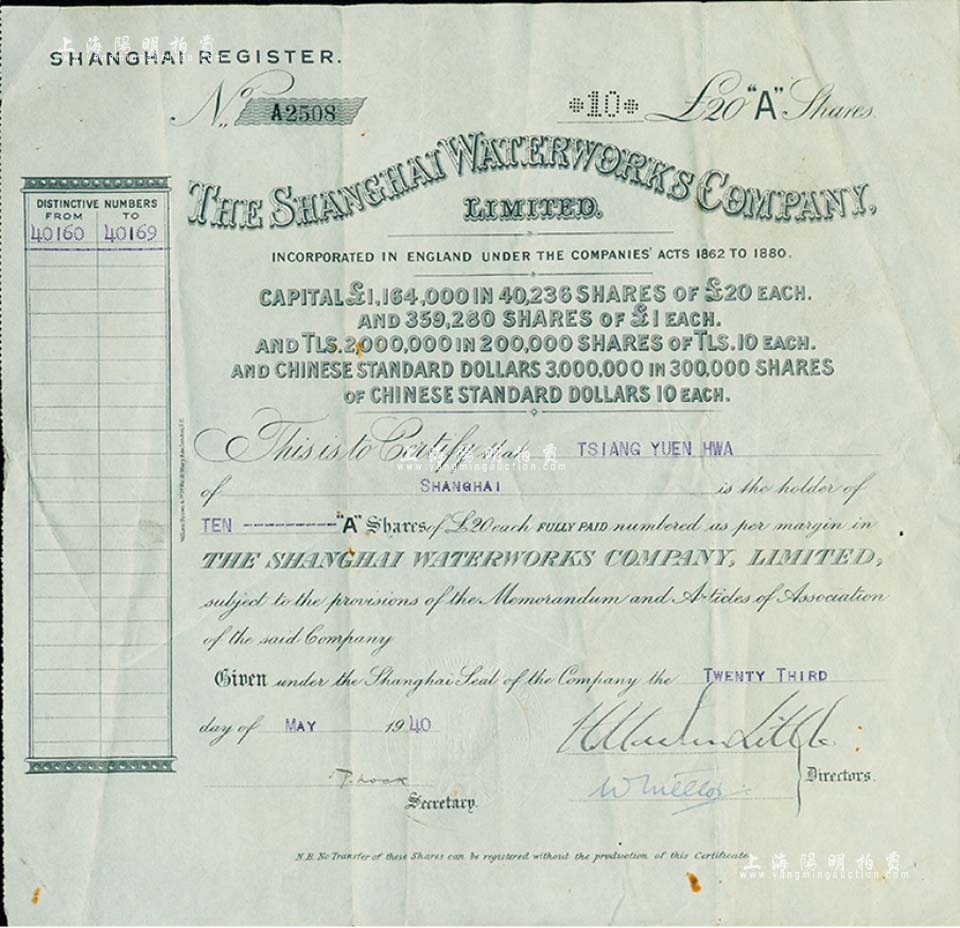 上海陽明拍賣
www.yangmingauction.com
SHANGHAI REGISTER.
No. A2508
*10* £20 "A" Shares.
THE SHANGHAI WATERWORKS COMPANY,
LIMITED.
INCORPORATED IN ENGLAND UNDER THE COMPANIES' ACTS 1862 TO 1880.
CAPITAL £1,164,000 IN 40,236 SHARES OF £20 EACH.
AND 359,280 SHARES OF £1 EACH.
AND TLS. 2,000,000 IN 200,000 SHARES OF TLS. 10 EACH.
AND CHINESE STANDARD DOLLARS 3,000,000 IN 300,000 SHARES
OF CHINESE STANDARD DOLLARS 10 EACH.
DISTINCTIVE NUMBERS
FROM TO
40160 40169
This is to Certify that TSIANG YUEN HWA
上海陽明拍賣
www.yangmingauction.com
of SHANGHAI is the holder of
TEN ---------- "A" Shares of £20 each FULLY PAID numbered as per margin in
THE SHANGHAI WATERWORKS COMPANY, LIMITED,
subject to the provisions of the Memorandum and Articles of Association
of the said Company
Given under the Shanghai Seal of the Company the TWENTY THIRD
day of MAY 1940
Directors.
Secretary.
N.B. No Transfer of these Shares can be registered without the production of this Certificate
上海陽明拍賣
www.yangmingauction.com